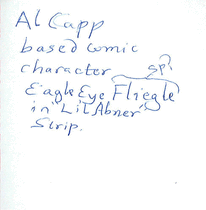 Al Capp
based comic
character sp?
Eagle Eye Fliegle
in 'Lil Abner'
Strip.